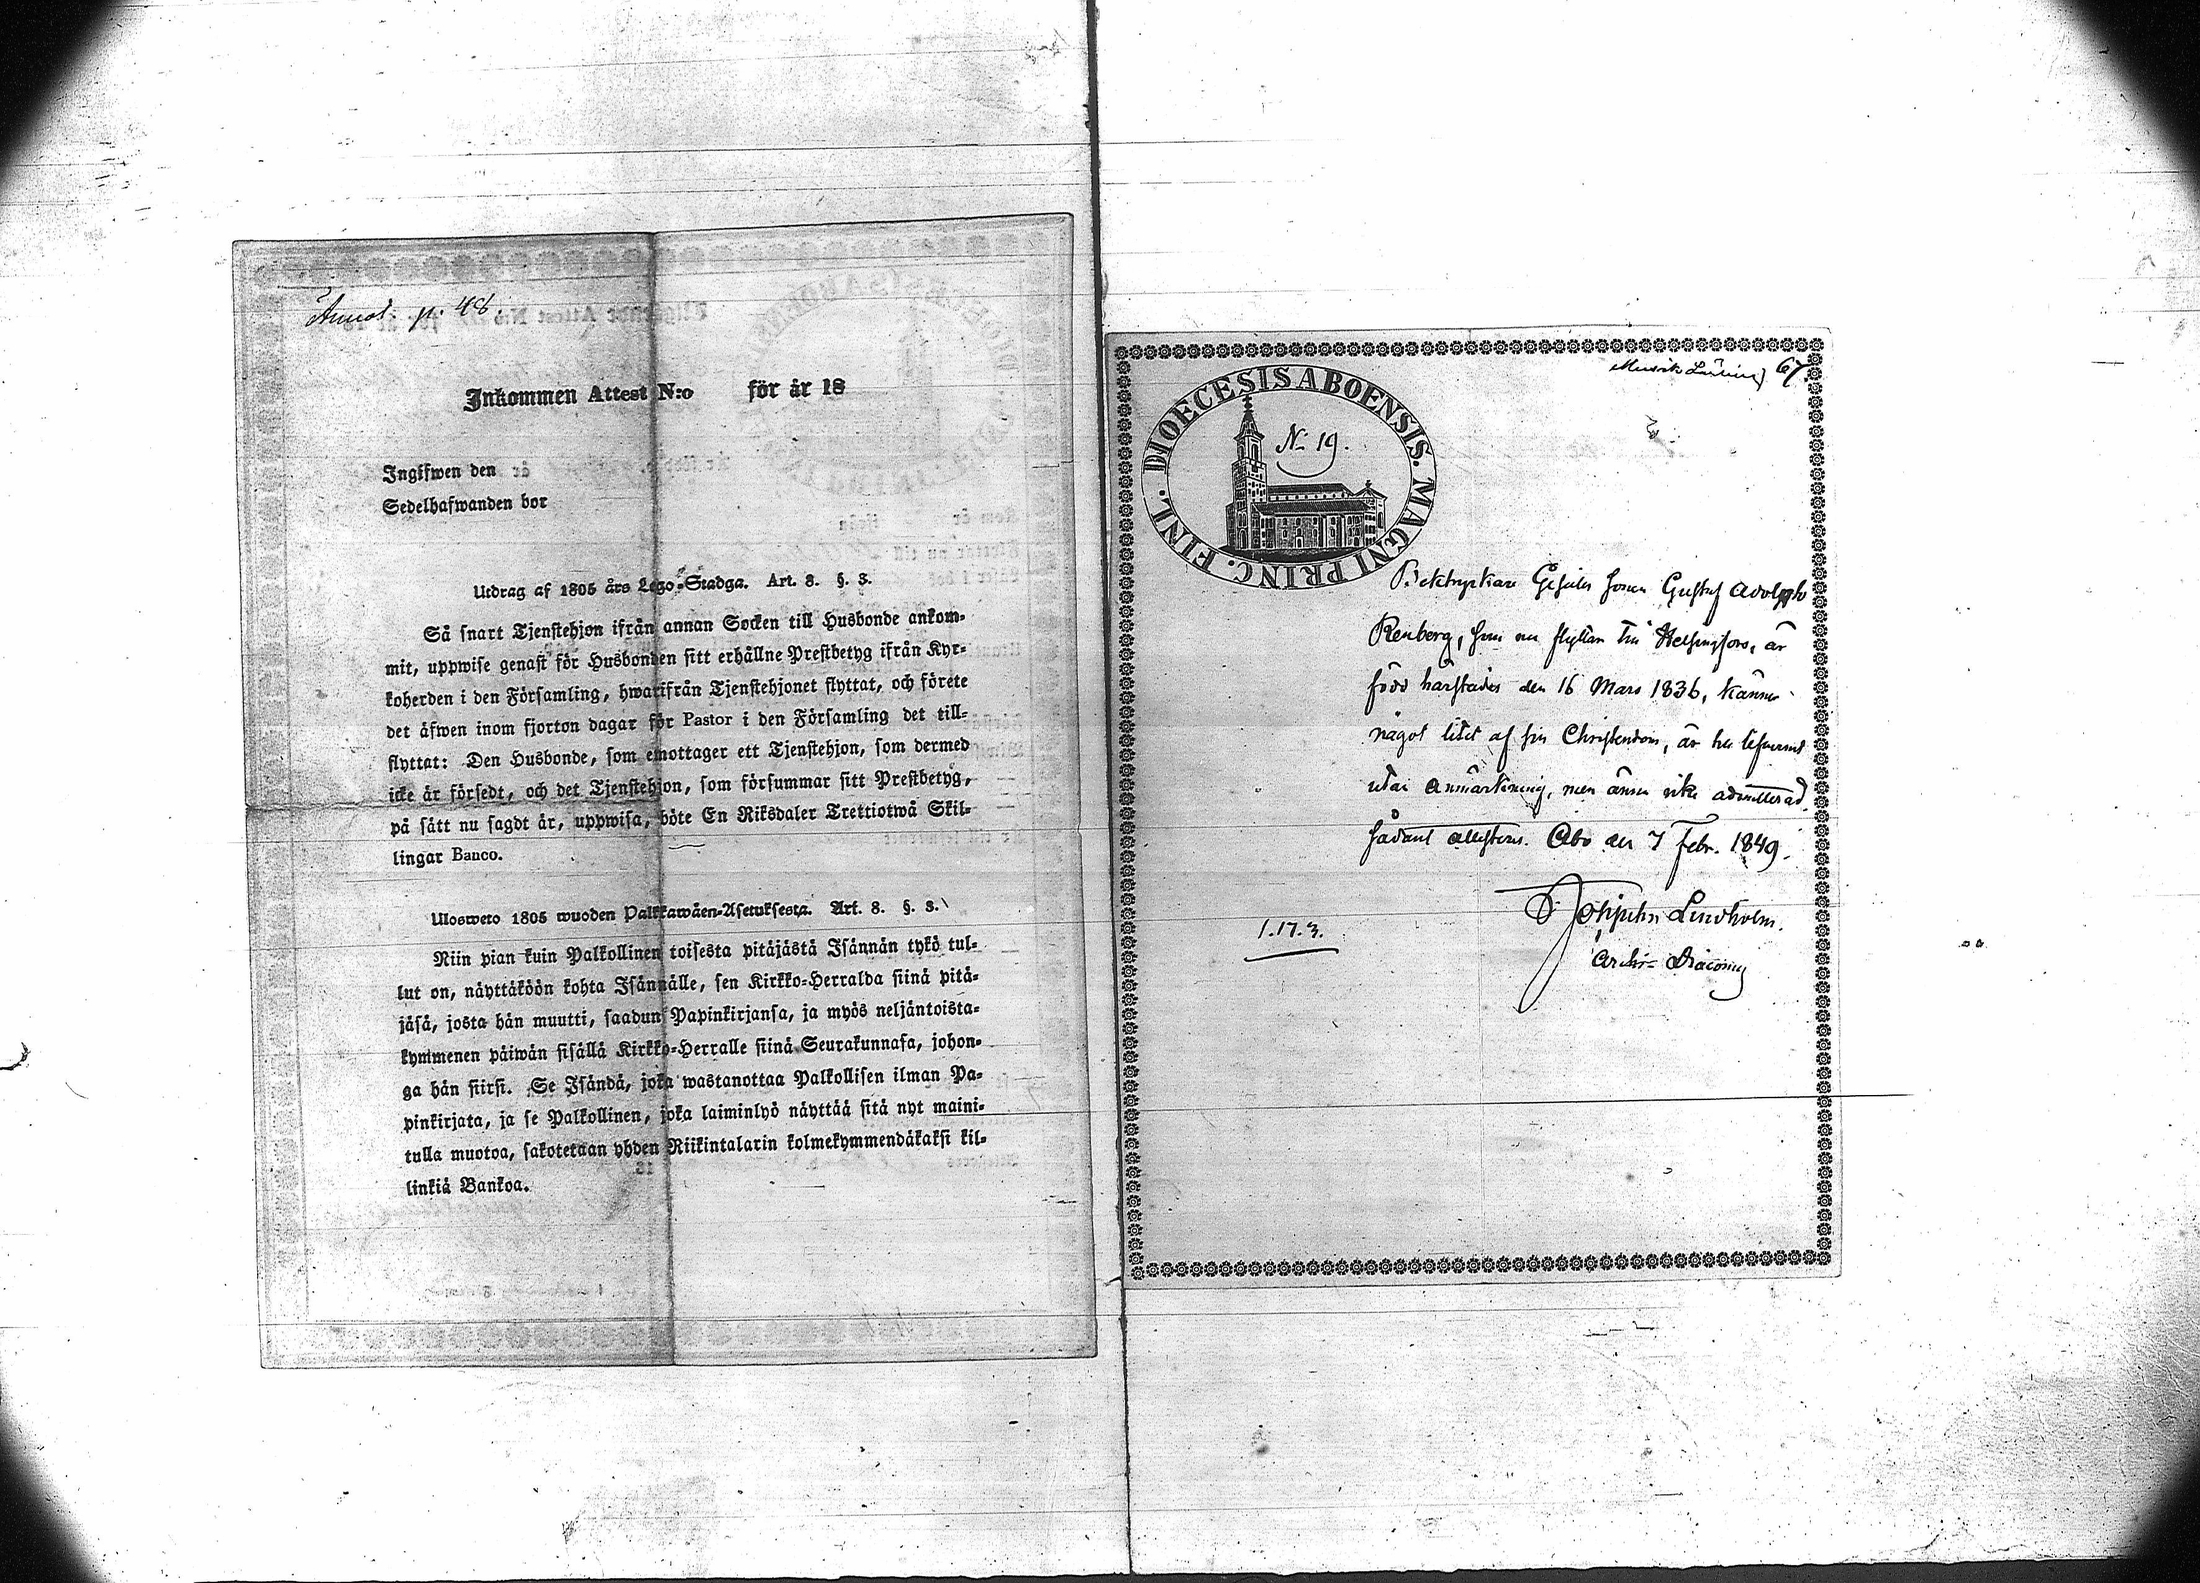 Annot p. 48.
Inkommen Attest N:o för år 18
Ingifwen den
Sedelhafwanden bor
Utdrag af 1805 års Lego-Stadga. Art. 8. §. 3.
Så snart Tjenstehjon ifrån annan Socken till Husbonde ankom-
mit, uppwise genast för Husbonden sitt erhållne Prestbetyg ifrån Kyr-
koherden i den Församling, hwarifrån Tjenstehjonet flyttat, och förete
det äfwen inom fjorton dagar för Pastor i den Församling det till-
flyttat: Den Husbonde, som emottager ett Tjenstehjon, som dermed
icke är försedt, och det Tjenstehjon, som försummar sitt Prestbetyg,
på sätt nu sagdt är, uppwisa, böte En Riksdaler Trettiotwå Skil-
lingar Banco.
Ulosweto 1805 wuoden Palkkawäen-Asetuksesta. Art. 8. §. 3.
Niin pian kuin Palkollinen toisesta pitäjästä Isännän tykö tul-
lut on, näyttäköön kohta Isännälle, sen Kirkko-Herralda siinä pitä-
jäsä, josta hän muutti, saadun Papinkirjansa, ja myös neljäntoista-
kymmenen päiwän sisällä Kirkko-Herralle siinä Seurakunnasa, johon-
ga hän siirsi. Se Isändä, joka wastanottaa Palkollisen ilman Pa-
pinkirjata, ja se Palkollinen, joka laiminlyö näyttää sitä nyt maini-
tulla muotoa, sakotetaan yhden Riikintalarin kolmekymmendäkaksi kil-
linkiä Bankoa.
67.
DIOECESIS ABOENSIS. MAGNI PRINC. FINL.
N: 19.
Boktryckare Gesällen Gustaf Adolph
Renberg, som nu flyttar till Helsingfors, är
född härstädes den 16 Mars 1836, känner
något litet af sin Christendom, är till lefvernet
utan anmärkning, men ännu icke admitterad.
Sådant attesteras. Åbo den 7 Febr. 1849.
Lindholm.
Archi-Diaconus
1.17.3.